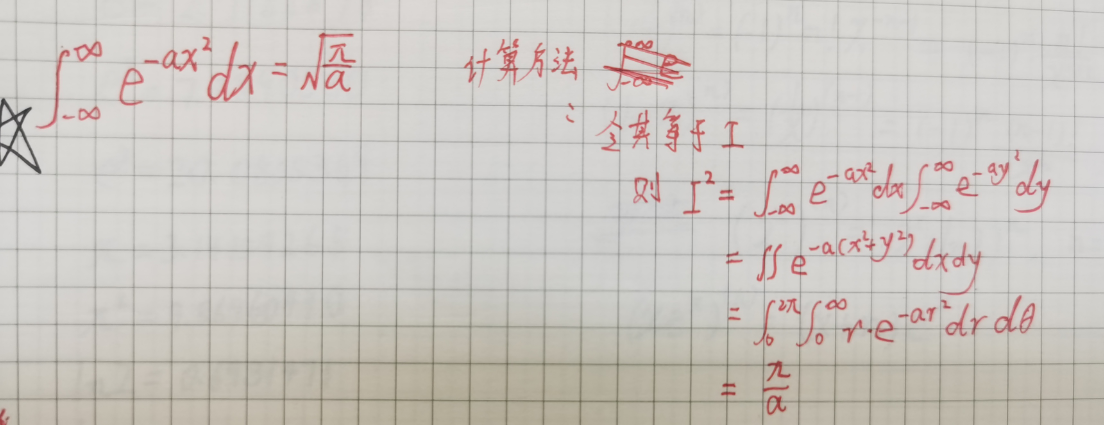 ∫_{-∞}^{∞} e^{-ax²} dx = √(π/a)
计算方法
:
令其等于 I
则 I² = ∫_{-∞}^{∞} e^{-ax²} dx ∫_{-∞}^{∞} e^{-ay²} dy
= ∬ e^{-a(x²+y²)} dxdy
= ∫_0^{2π} ∫_0^{∞} r·e^{-ar²} dr dθ
= π/a